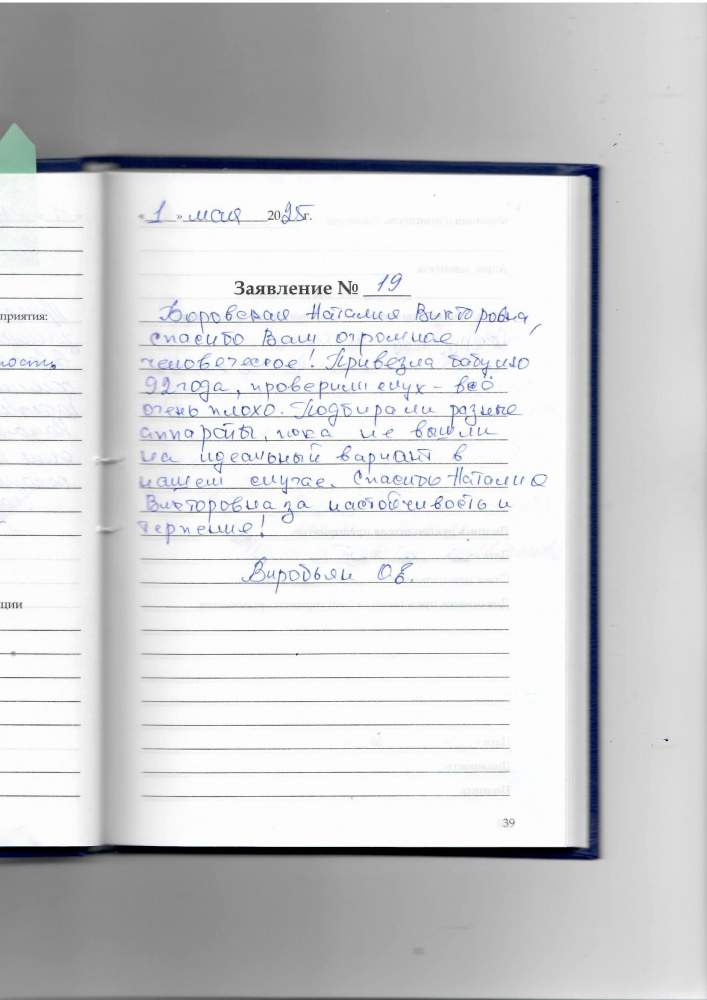 «1» мая 2025г.
приятия:
Заявление № 19
Боровская Наталия Викторовна,
спасибо Вам огромное
человеческое! Привезла бабулю
92 года, проверили слух - всё
очень плохо. Подбирали разные
аппараты, пока не вышли
на идеальный вариант в
нашем случае. Спасибо Наталия
Викторовна за настойчивость и
терпение!
ции
39